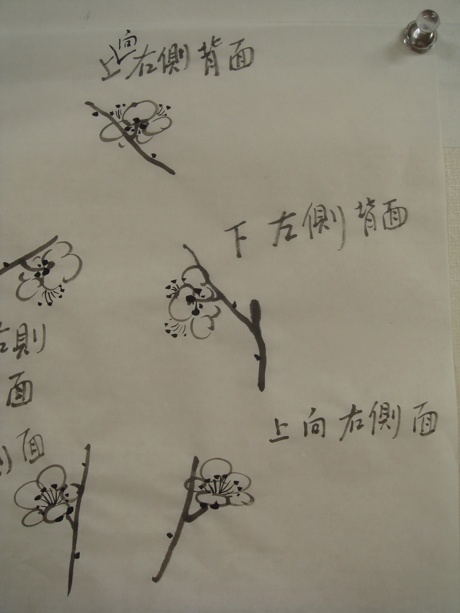 上向右側背面
下左側背面
右側
面
上向右側面
側面